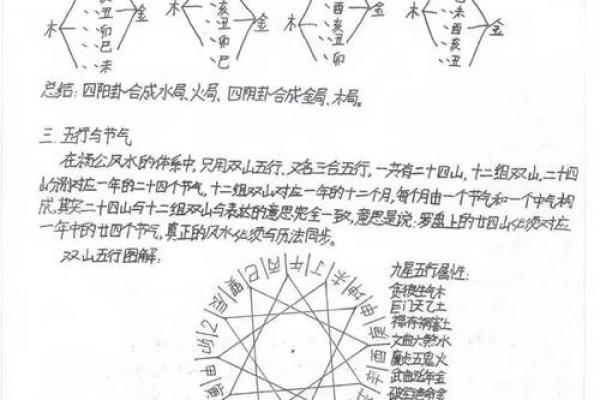 亥
丑
卯
巳
未
木
金
亥
丑
卯
巳
酉
亥
丑
卯
木
金
未
酉
亥
丑
木
金
总结:四阳卦合成水局、火局、四阴卦合成金局、木局。
三.五行与节气
在杨公风水的体系中,只用双山五行,又名三合五行,一共有二十四山,十二组双山.二十四
山分别对应一年的二十四个节气,十二组双山对应一年的十二个月,每个月由一个节气和一个中气构
成,其实二十四山与十二组双山与表达的意思完全一致,意思是说:罗盘上的廿四山必须对应
一年中的廿四个节气,真正的风水必须与历法同步。
双山五行图解:
甲 卯 乙 辰 巽 巳 丙 午 丁 未 坤 申 庚 酉 辛
九星五行属性:
贪狼生气木
巨门天乙土
禄存祸害土
文曲六煞水
廉贞五鬼火
武曲延年金
破军绝命金